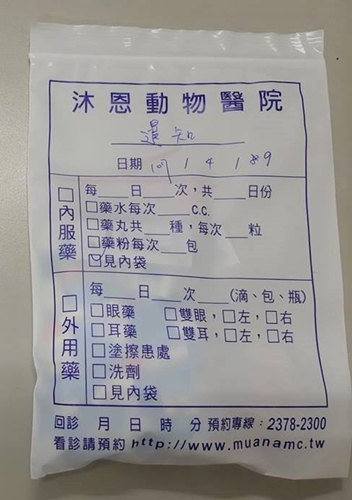 沐恩動物醫院
日期 109 / 4 / 89
每___日___次,共___日份
□內服藥
□藥水每次____C.C.
□藥丸共___種,每次___粒
□藥粉每次___包
☑見內袋
每___日___次____(滴、包、瓶)
□外用藥
□眼藥 □雙眼,□左,□右
□耳藥 □雙耳,□左,□右
□塗擦患處
□洗劑
□見內袋
回診 月 日 時 分 預約專線:2378-2300
看診請預約 http://www.muanamc.tw